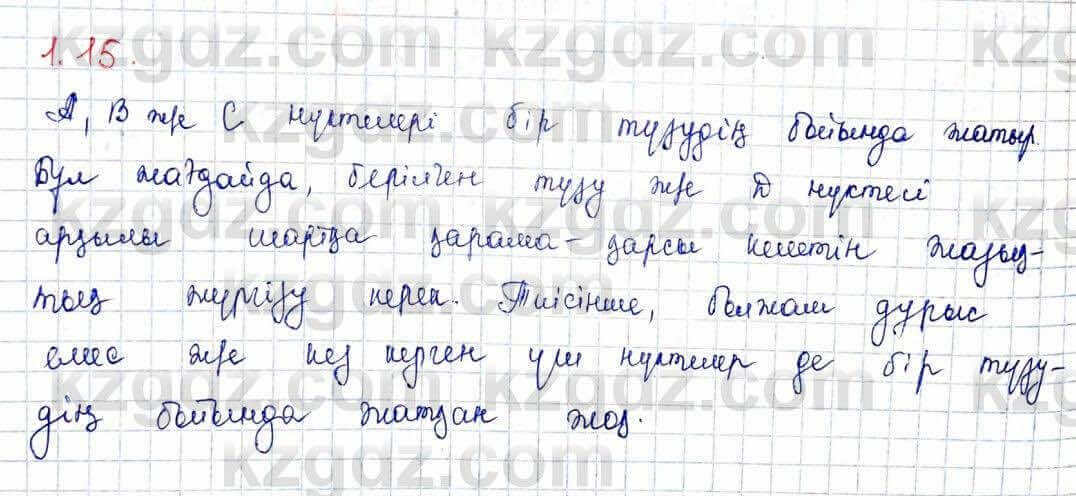 1.15.
А, В же С нүктелері бір түзудің бойында жатыр.
Бұл жағдайда, берілген түзу же D нүктесі
арқылы шартқа қарама-қарсы келетін жазық-
тық жүргізу керек. Тиісінше, болжам дұрыс
емес же кез келген үш нүктелер де бір түзу-
дің бойында жатқан жоқ.